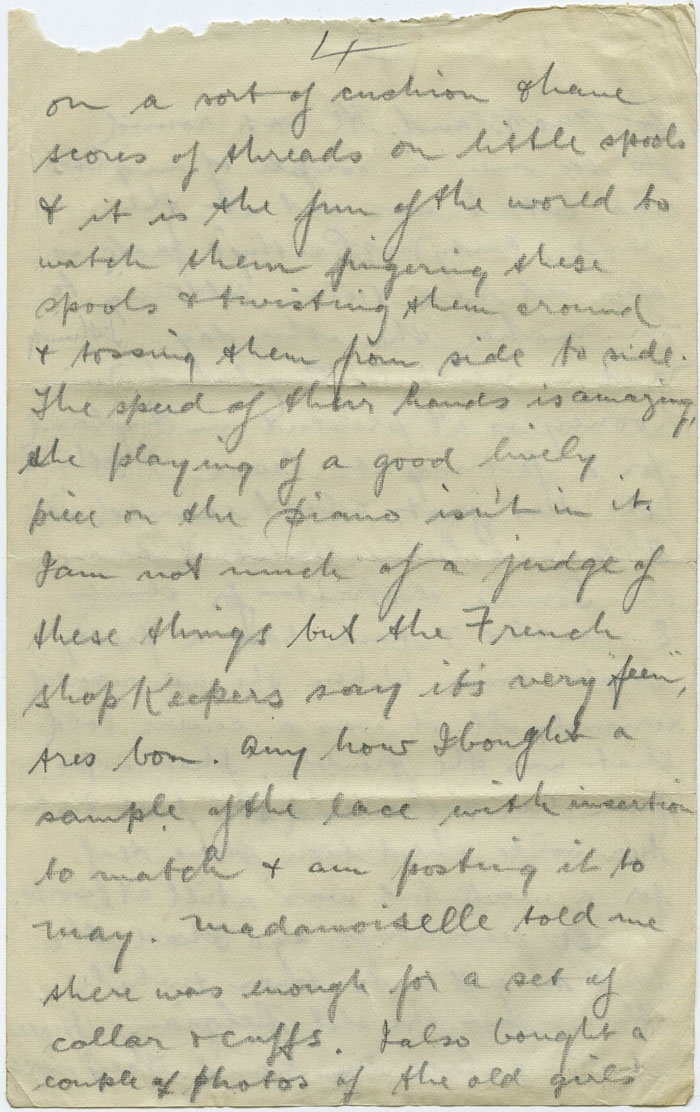 4
on a sort of cushion & have
scores of threads on little spools
& it is the fun of the world to
watch them fingering these
spools & twisting them around
& tossing them from side to side.
The speed of their hands is amazing,
the playing of a good lively
piece on the piano isn't in it.
I am not much of a judge of
these things but the French
shopkeepers say it's very "feen",
tres bon. Any how I bought a
sample of the lace with insertion
to match & am posting it to
May. Madamoiselle told me
there was enough for a set of
collar & cuffs. I also bought a
couple of photos of the old girls